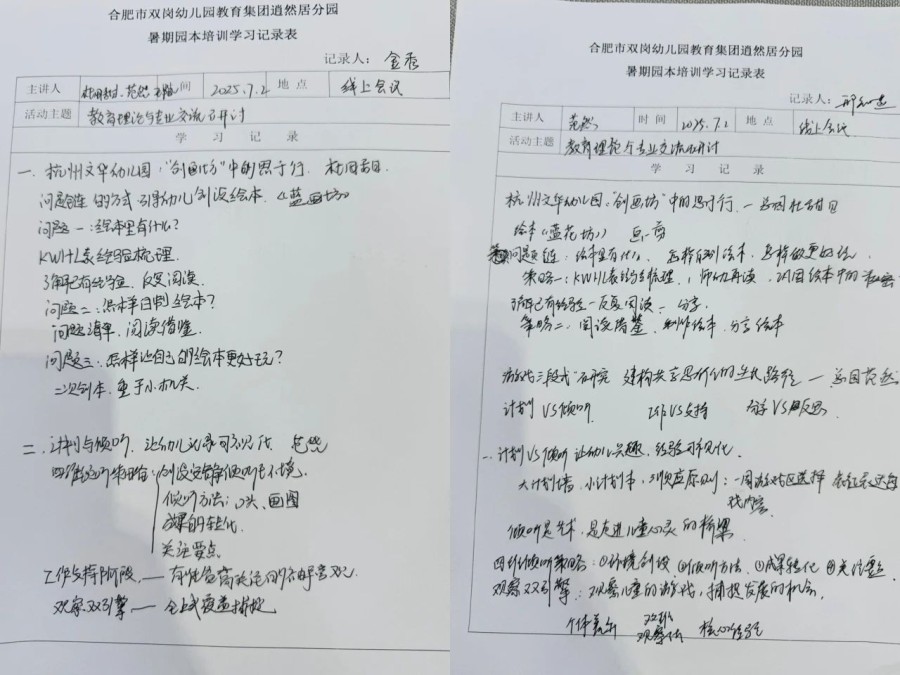 合肥市双岗幼儿园教育集团逍然居分园
暑期园本培训学习记录表
记录人：
主讲人 范然 时间 2025.7.2 地点 线上会议
活动主题 教育理论与专业交流研讨
学习记录
一、杭州文华幼儿园，“创画坊”中的思与行
问题链的方式 引导幼儿创设绘本《蓝画坊》
问题一：绘本里有什么？
KWHL表经验梳理.
了解已有经验，反复阅读.
问题二：怎样自制绘本？
问题清单，阅读借鉴.
问题三：怎样让自己的绘本更好玩？
二次创本，重于小机关.
二、计划与倾听，让幼儿记录可视化 范然
四维倾听策略：创设安静倾听环境.
倾听方法：口头、画图
成果的转化.
关注要点.
工作与支持阶段 ——
观察双引擎 —— 全域覆盖捕捉
合肥市双岗幼儿园教育集团逍然居分园
暑期园本培训学习记录表
记录人：
主讲人 范然 时间 2025.7.2 地点 线上会议
活动主题 教育理论与专业交流研讨
学习记录
杭州文华幼儿园“创画坊”中的思与行 —
绘本《蓝花坊》
问题链：绘本里有什么，怎样自制绘本，怎样做更好玩
策略一：KWHL表经验梳理，师幼再读，巩固绘本中的
了解已有经验 — 反复阅读 — 分享
策略二、阅读借鉴，制作绘本，分享绘本
计划VS倾听 工作VS支持 分享VS反思
一、计划VS倾听 让幼儿兴趣，经验可视化.
大计划墙、小计划本，对应原则：一周游戏区选择
倾听是艺术，是走进儿童心灵的桥梁
四维倾听策略：①环境创设 ②倾听方法 ③成果转化 ④关注要点
观察双引擎：观察儿童的游戏，捕捉发展的机会.
个体差异 核心经验